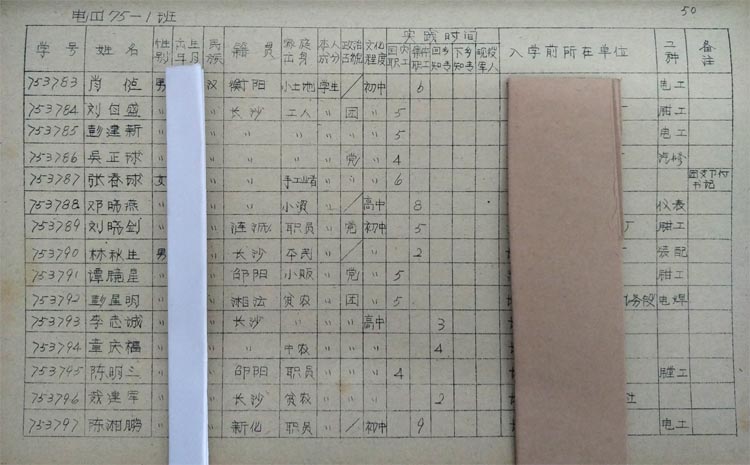 电四75-1班
50
实践时间
学号 姓名 性别 出生年月 民族 籍贯 家庭出身 本人成分 政治面貌 文化程度 国内职工 集体职工 回乡知专 下乡知专 现役军人 入学前所在单位 工种 备注
753783 肖 男 汉 衡阳 小土地 学生 / 初中 6 电工
753784 刘自盛 " " 长沙 工人 " 团 " 5 钳工
753785 彭建新 " " " " " " " 5 电工
753786 吴正球 " " " " " 党 " 4 汽修
753787 张春球 女 " " 手工业者 " " " 6 团支书记
753788 邓晓燕 " " " 小资 " / 高中 8 仪表
753789 刘晓剑 " " 涟源 职员 " 党 初中 5 厂 钳工
753790 林秋生 男 " 长沙 市民 " / " 2 装配
753791 谭晓星 " " 邵阳 小贩 " 党 " 5 钳工
753792 彭星明 " " 湘法 贫农 " 团 " 5 电焊
753793 李志诚 " " 长沙 " " " 高中 3
753794 童庆福 " " " 中农 " " " 4
753795 陈明三 " " 邵阳 职员 " " " 4 镗工
753796 建军 " " 长沙 贫农 " " " 2 社
753797 陈湘鹏 " " 新化 职员 " / 初中 9 电工